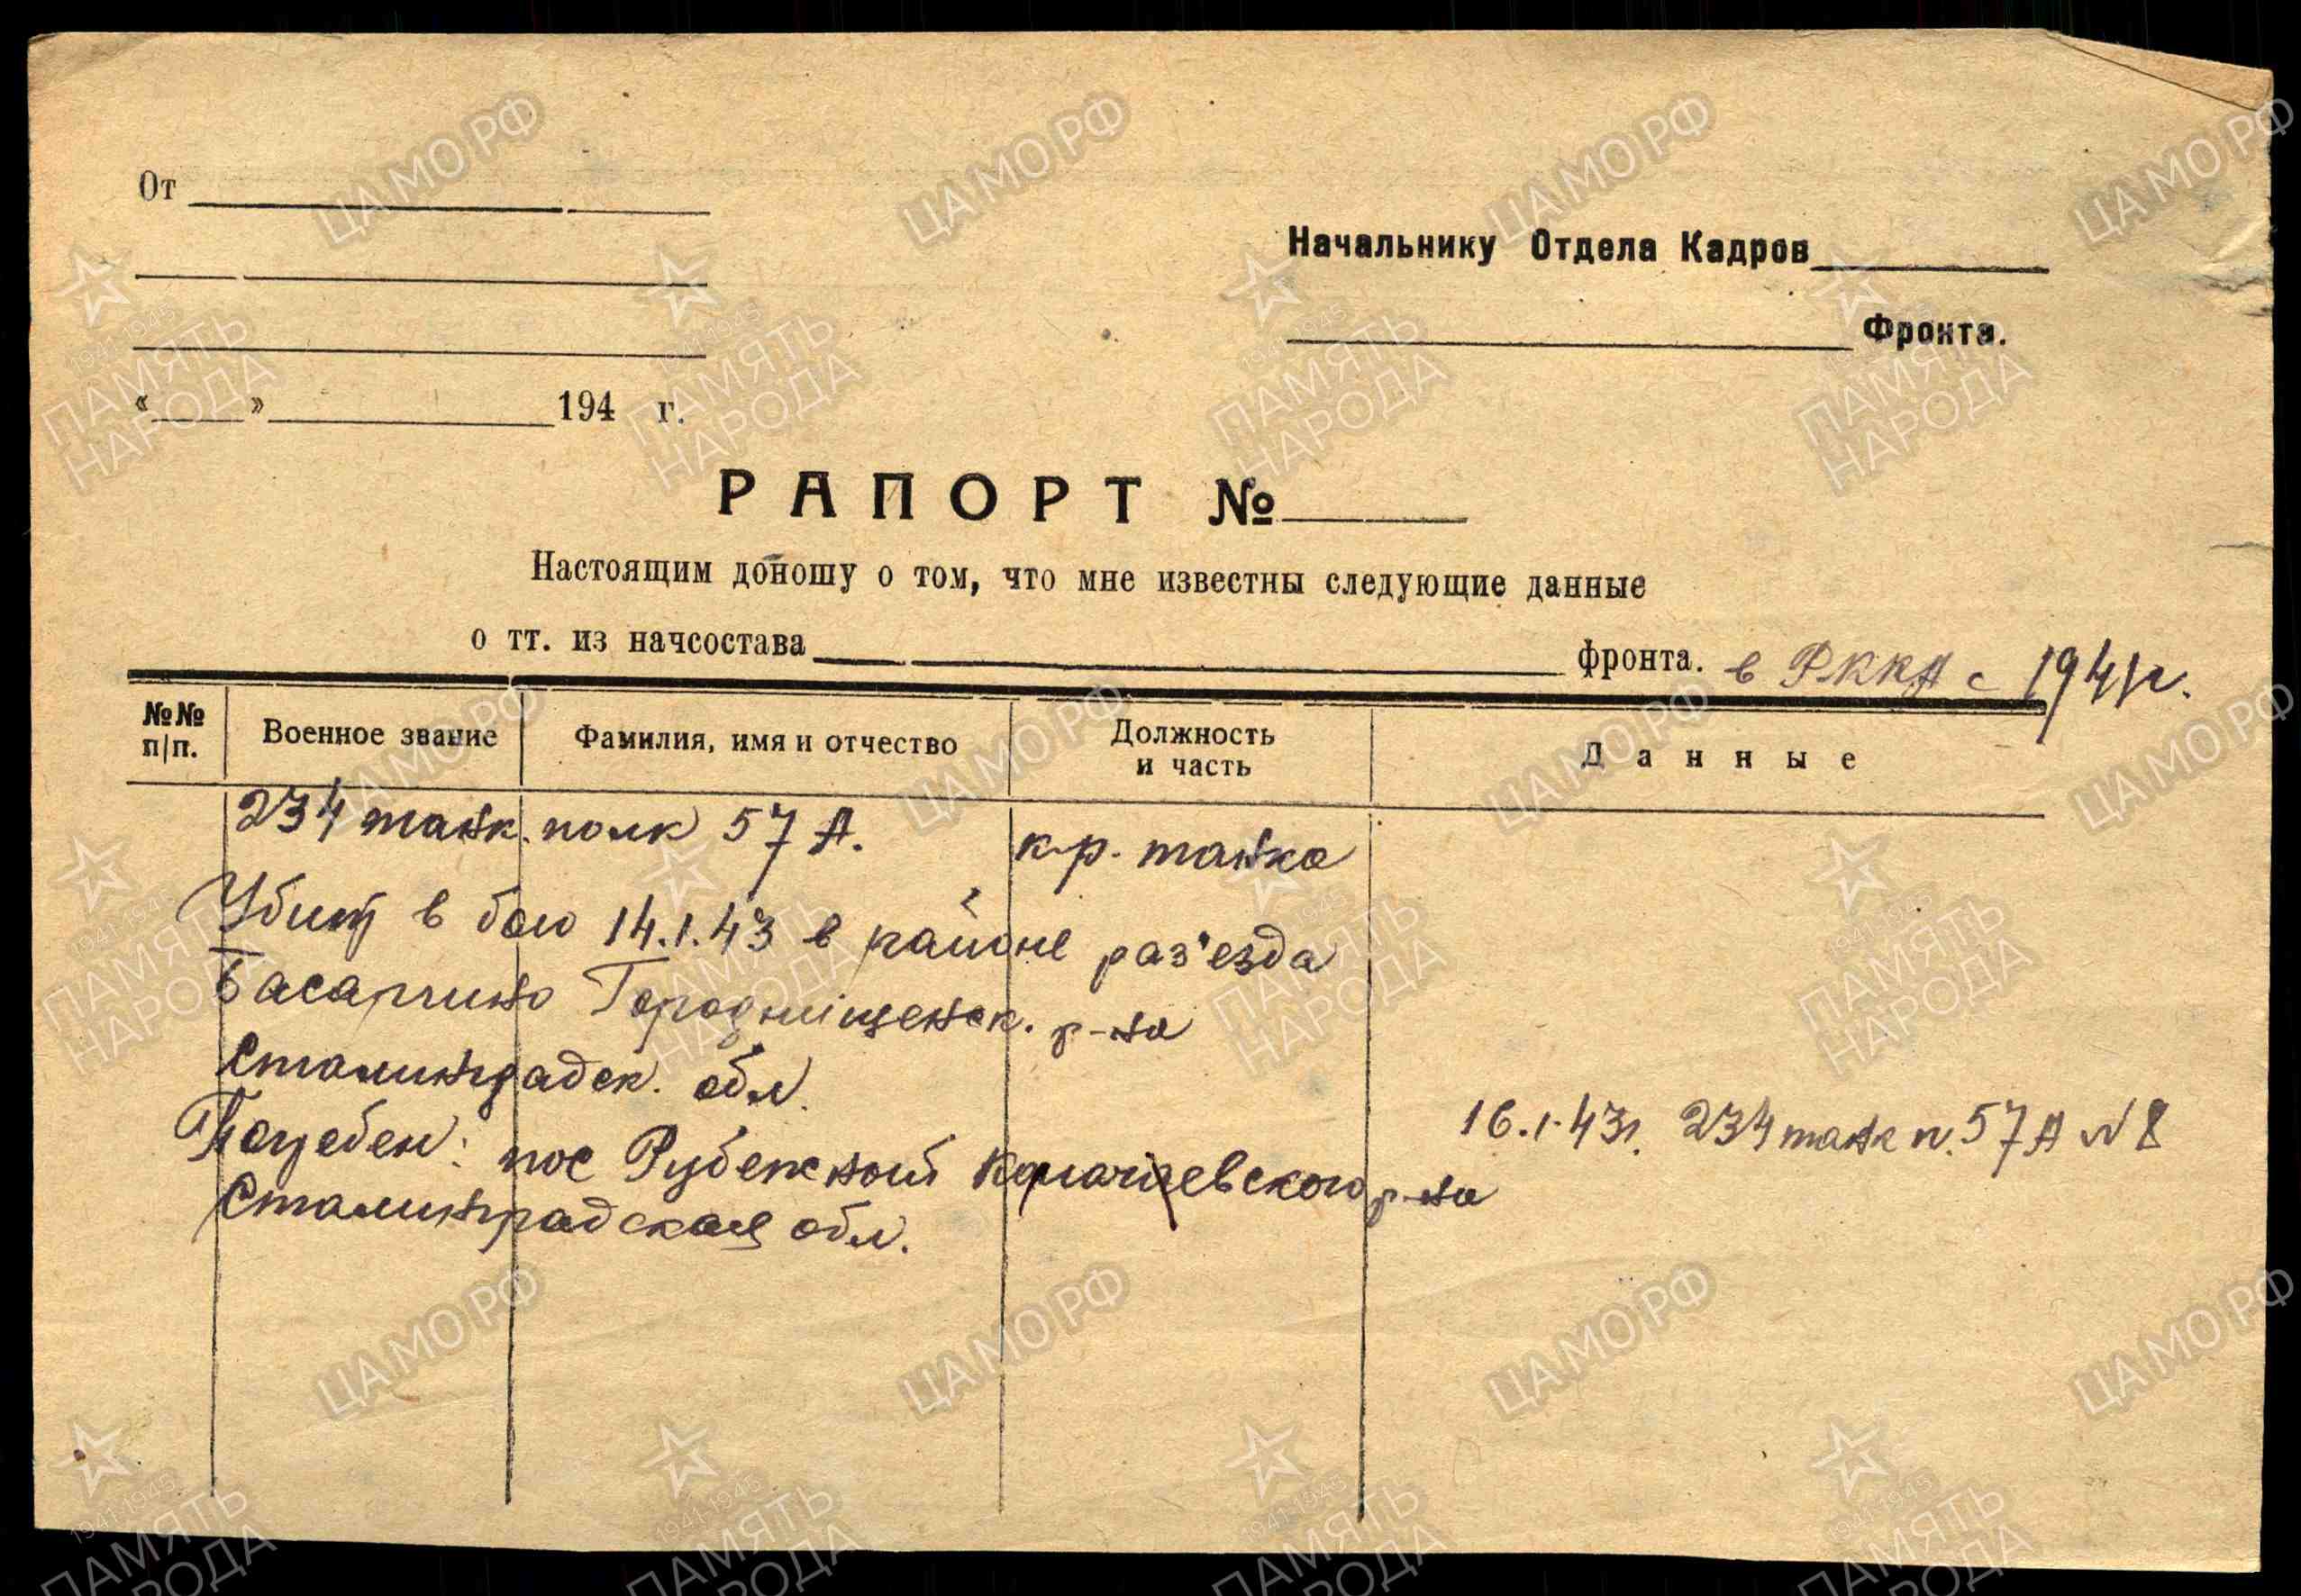 От
Начальнику Отдела Кадров
Фронта.
« » 194 г.
РАПОРТ №
Настоящим доношу о том, что мне известны следующие данные
о тт. из начсостава фронта. в РККА с 1941г.
№№ п/п. Военное звание Фамилия, имя и отчество Должность и часть Данные
234 танк. полк 57 А. к-р. танка
Убит в бою 14.1.43 в районе раз'езда
Басаргино Городищенск. р-на
Сталинградск. обл.
16.1.43г. 234 танк п. 57 А № 8
Погребен: пос Рубежный Калачаевского р-на
Сталинградская обл.
ЦАМО.РФ
1941-1945
ПАМЯТЬ
НАРОДА